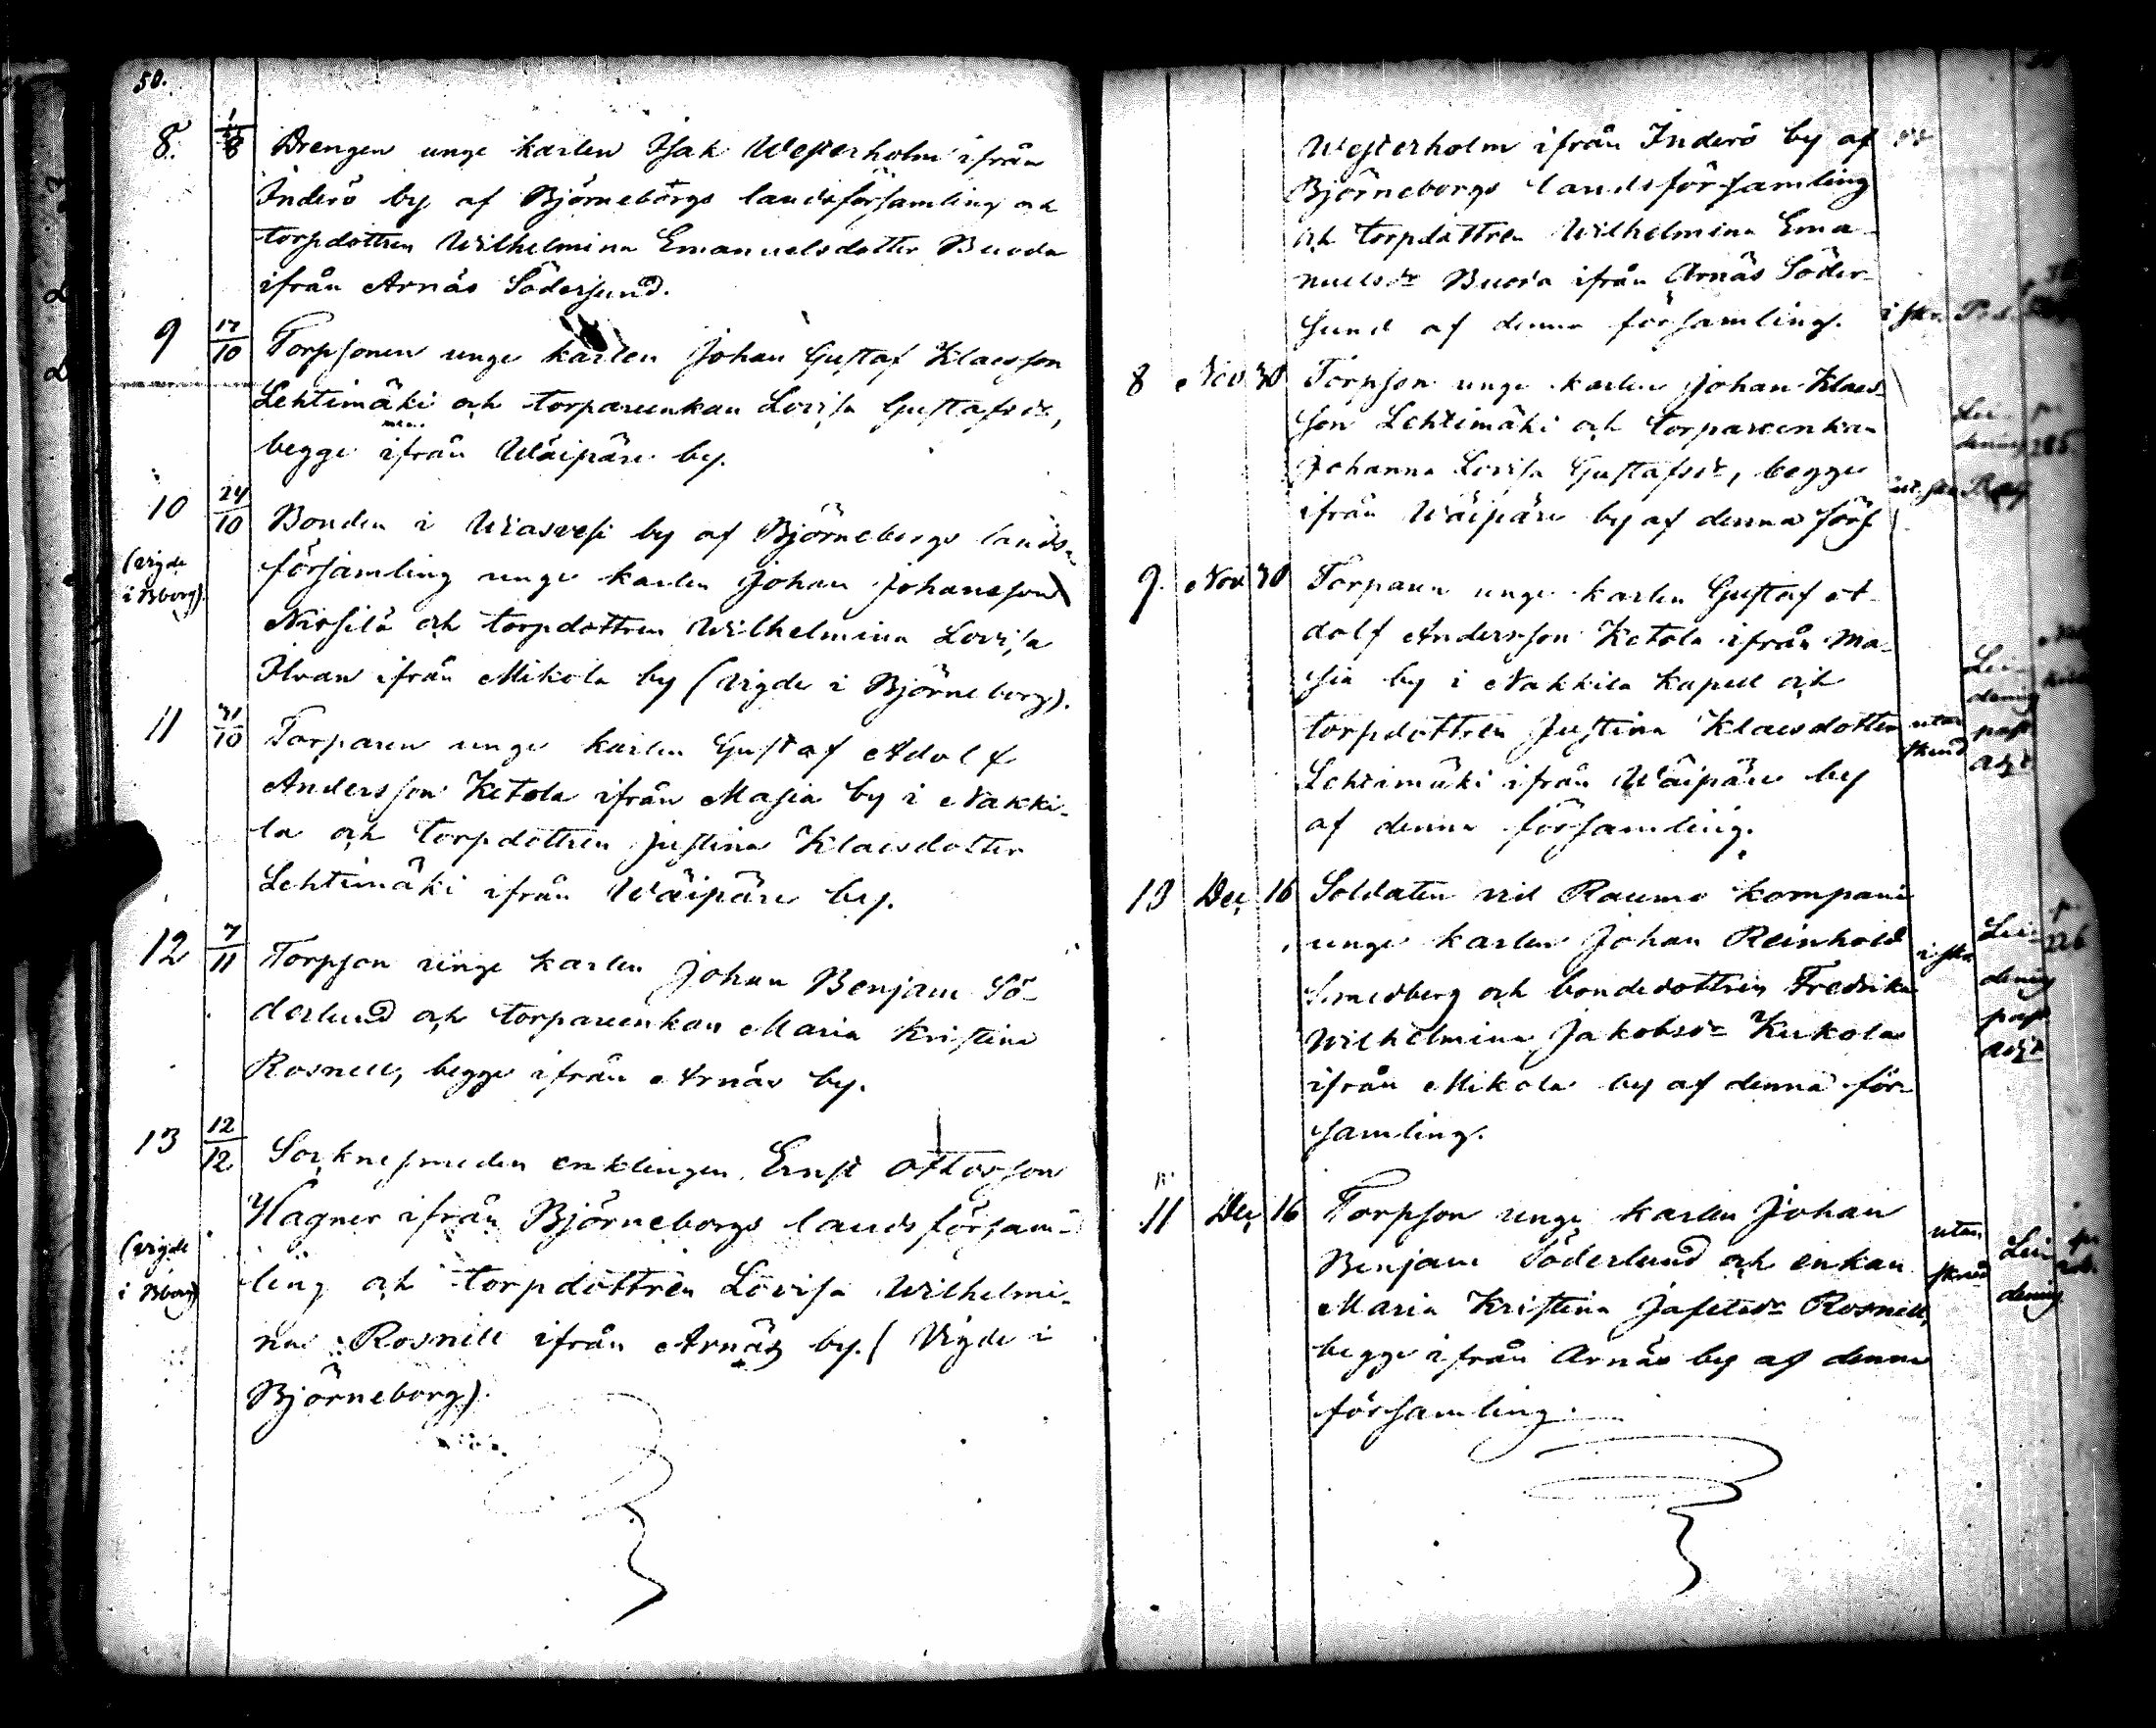 50.
8. 1/8 Drengen unge karlen Isak Westerholm ifrån
Inderö by af Björneborgs landsförsamling och
torpdottren Wilhelmina Emanuelsdotter Buoda
ifrån Arnäs Södersund.
9 17/10 Torpsonen unge karlen Johan Gustaf Klaesson
Lehtimäki och torpareenkan Lovisa Gustafsdr,
begge ifrån Wäipäre by.
10 24/10 Bonden i Wiasvesi by af Björneborgs lands-
(vigde i Bborg) församling unge karlen Johan Johansson
Nissilä och torpdottren Wilhelmina Lovisa
Ilvan ifrån Mikola by (vigde i Björneborg).
11 31/10 Torparen unge karlen Gustaf Adolf
Andersson Ketola ifrån Masia by i Nakki-
la och torpdottren Justina Klaesdotter
Lehtimäki ifrån Wäipäre by.
12 7/11 Torpson unge karlen Johan Benjam Sö-
derlund och torpareenkan Maria Kristina
Rosnell, begge ifrån Arnäs by.
13 12/12 Socknesmeden enklingen Ernst Ottosson
Wagner ifrån Björneborgs landsförsam-
(vigde i Bborg) ling och torpdottren Lovisa Wilhelmi-
na Rosnell ifrån Arnäs by. (Vigde i
Björneborg).
Westerholm ifrån Inderö by af
Björneborgs landsförsamling
och torpdottren Wilhelmina Ema-
nuelsdr Buoda ifrån Arnäs Söder-
sund af denna församling.
8 Nov. 30 Torpson unge karlen Johan Klaes-
son Lehtimäki och torpareenkan
Johanna Lovisa Gustafsdr, begge
ifrån Wäipäre by af denna förs.
9. Nov. 30 Torparen unge karlen Gustaf A-
dolf Andersson Ketola ifrån Ma-
sia by i Nakkila kapell och
torpdottren Justina Klaesdotter utan
Lehtimäki ifrån Wäipäre by
af denna församling.
13 Dec. 16 Soldaten vid Raumo kompani
unge karlen Johan Reinhold
Smedberg och bondedottren Fredrika
Wilhelmina Jakobsdr Kukola
ifrån Mikola by af denna för-
samling.
11 Dec. 16 Torpson unge karlen Johan utan
Benjam Söderlund och enkan
Maria Kristina Jafetsdr Rosnell,
begge ifrån Arnäs by af denna
församling.